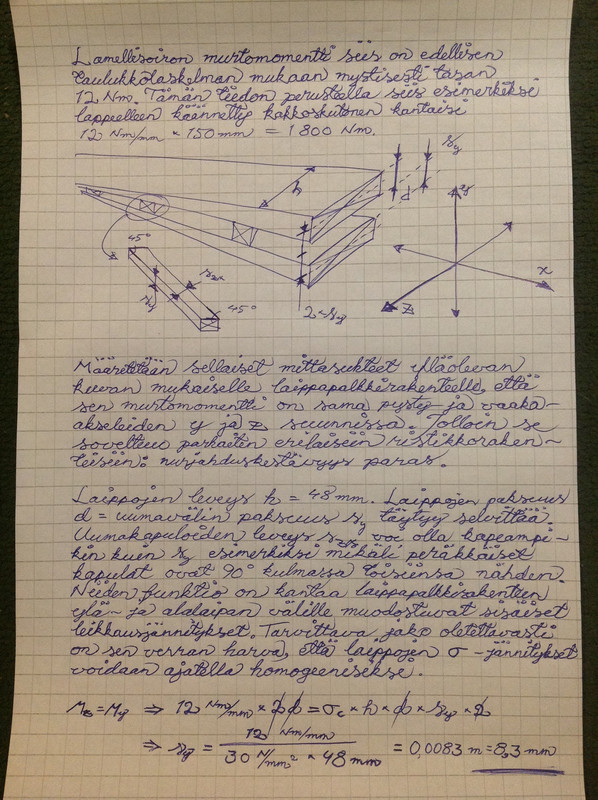 Lamellisoiron murtomomentti siis on edellisen
taulukkolaskelman mukaan mystisesti tasan
12 Nm. Tämän tiedon perusteella siis esimerkiksi
lappeelleen käännetty kakkoskutonen kantaisi
12 Nm/mm * 150 mm = 1800 Nm.
h
d
y
x
z
45°
45°
Määritetään sellaiset mittasuhteet ylläolevan
kuvan mukaiselle laippapalkkirakenteelle, että
sen murtomomentti on sama pysty- ja vaaka-
akseleiden y ja z suunnissa. Tolloin se
soveltuu parhaiten erilaisiin ristikkoraken-
teisiin: nurjahduskestävyys paras.
Laippojen leveys h = 48 mm. Laippojen paksuus
d = uumavälin paksuus sy täytyy selvittää.
Uumakapuloiden leveys voi olla kapeampi-
kin kuin sy esimerkiksi mikäli peräkkäiset
kapulat ovat 90° kulmassa toisiinsa nähden.
Niiden funktio on kantaa laippapalkkirakenteen
ylä- ja alalaipan välille muodostuvat sisäiset
leikkausjännitykset. Tarvittava jako oletettavasti
on sen verran harva, että laippojen σ-jännitykset
voidaan ajatella homogeenisiksi.
Mz = My ⇒ 12 Nm/mm * 2d = σc * h * d * sy * 2
⇒ sy = 12 Nm/mm / 30 N/mm² * 48 mm = 0,0083 m = 8,3 mm